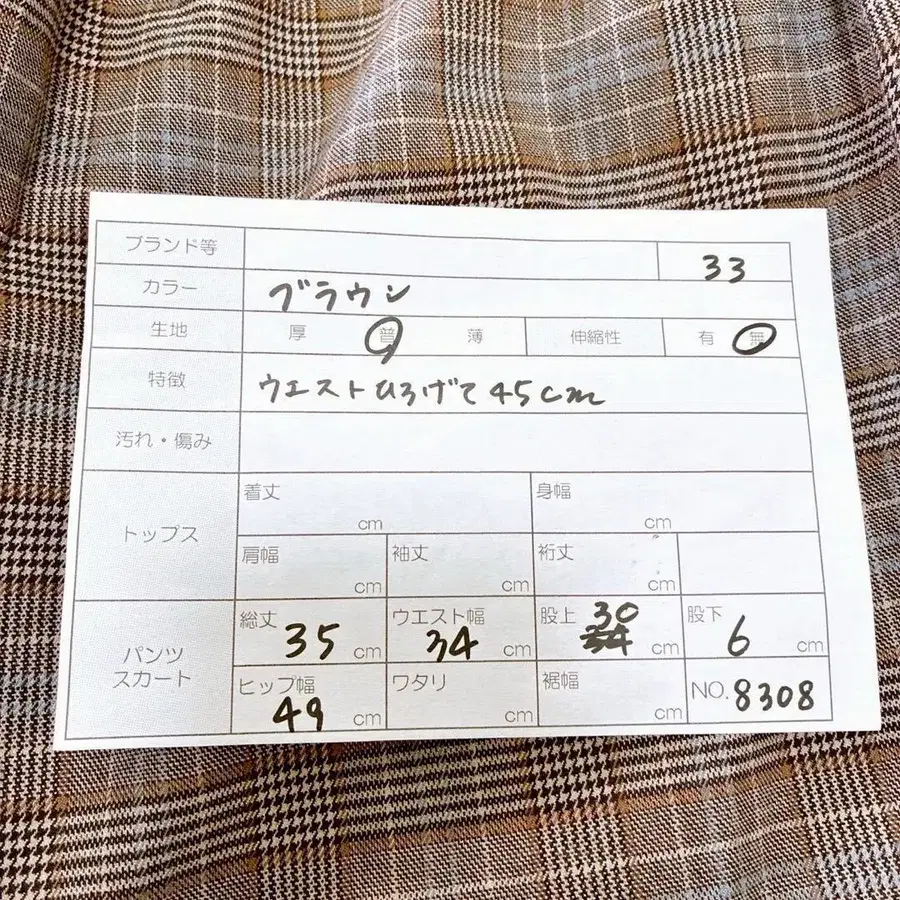 ブランド等 33
カラー ブラウン
生地 厚 普 薄 伸縮性 有 無
特徴 ウエストひろげて45cm
汚れ・傷み
トップス 着丈 cm 身幅 cm
肩幅 cm 袖丈 cm 裄丈 cm
パンツ スカート 総丈 35 cm ウエスト幅 34 cm 股上 30 34 cm 股下 6 cm
ヒップ幅 49 cm ワタリ cm 裾幅 cm NO. 8308